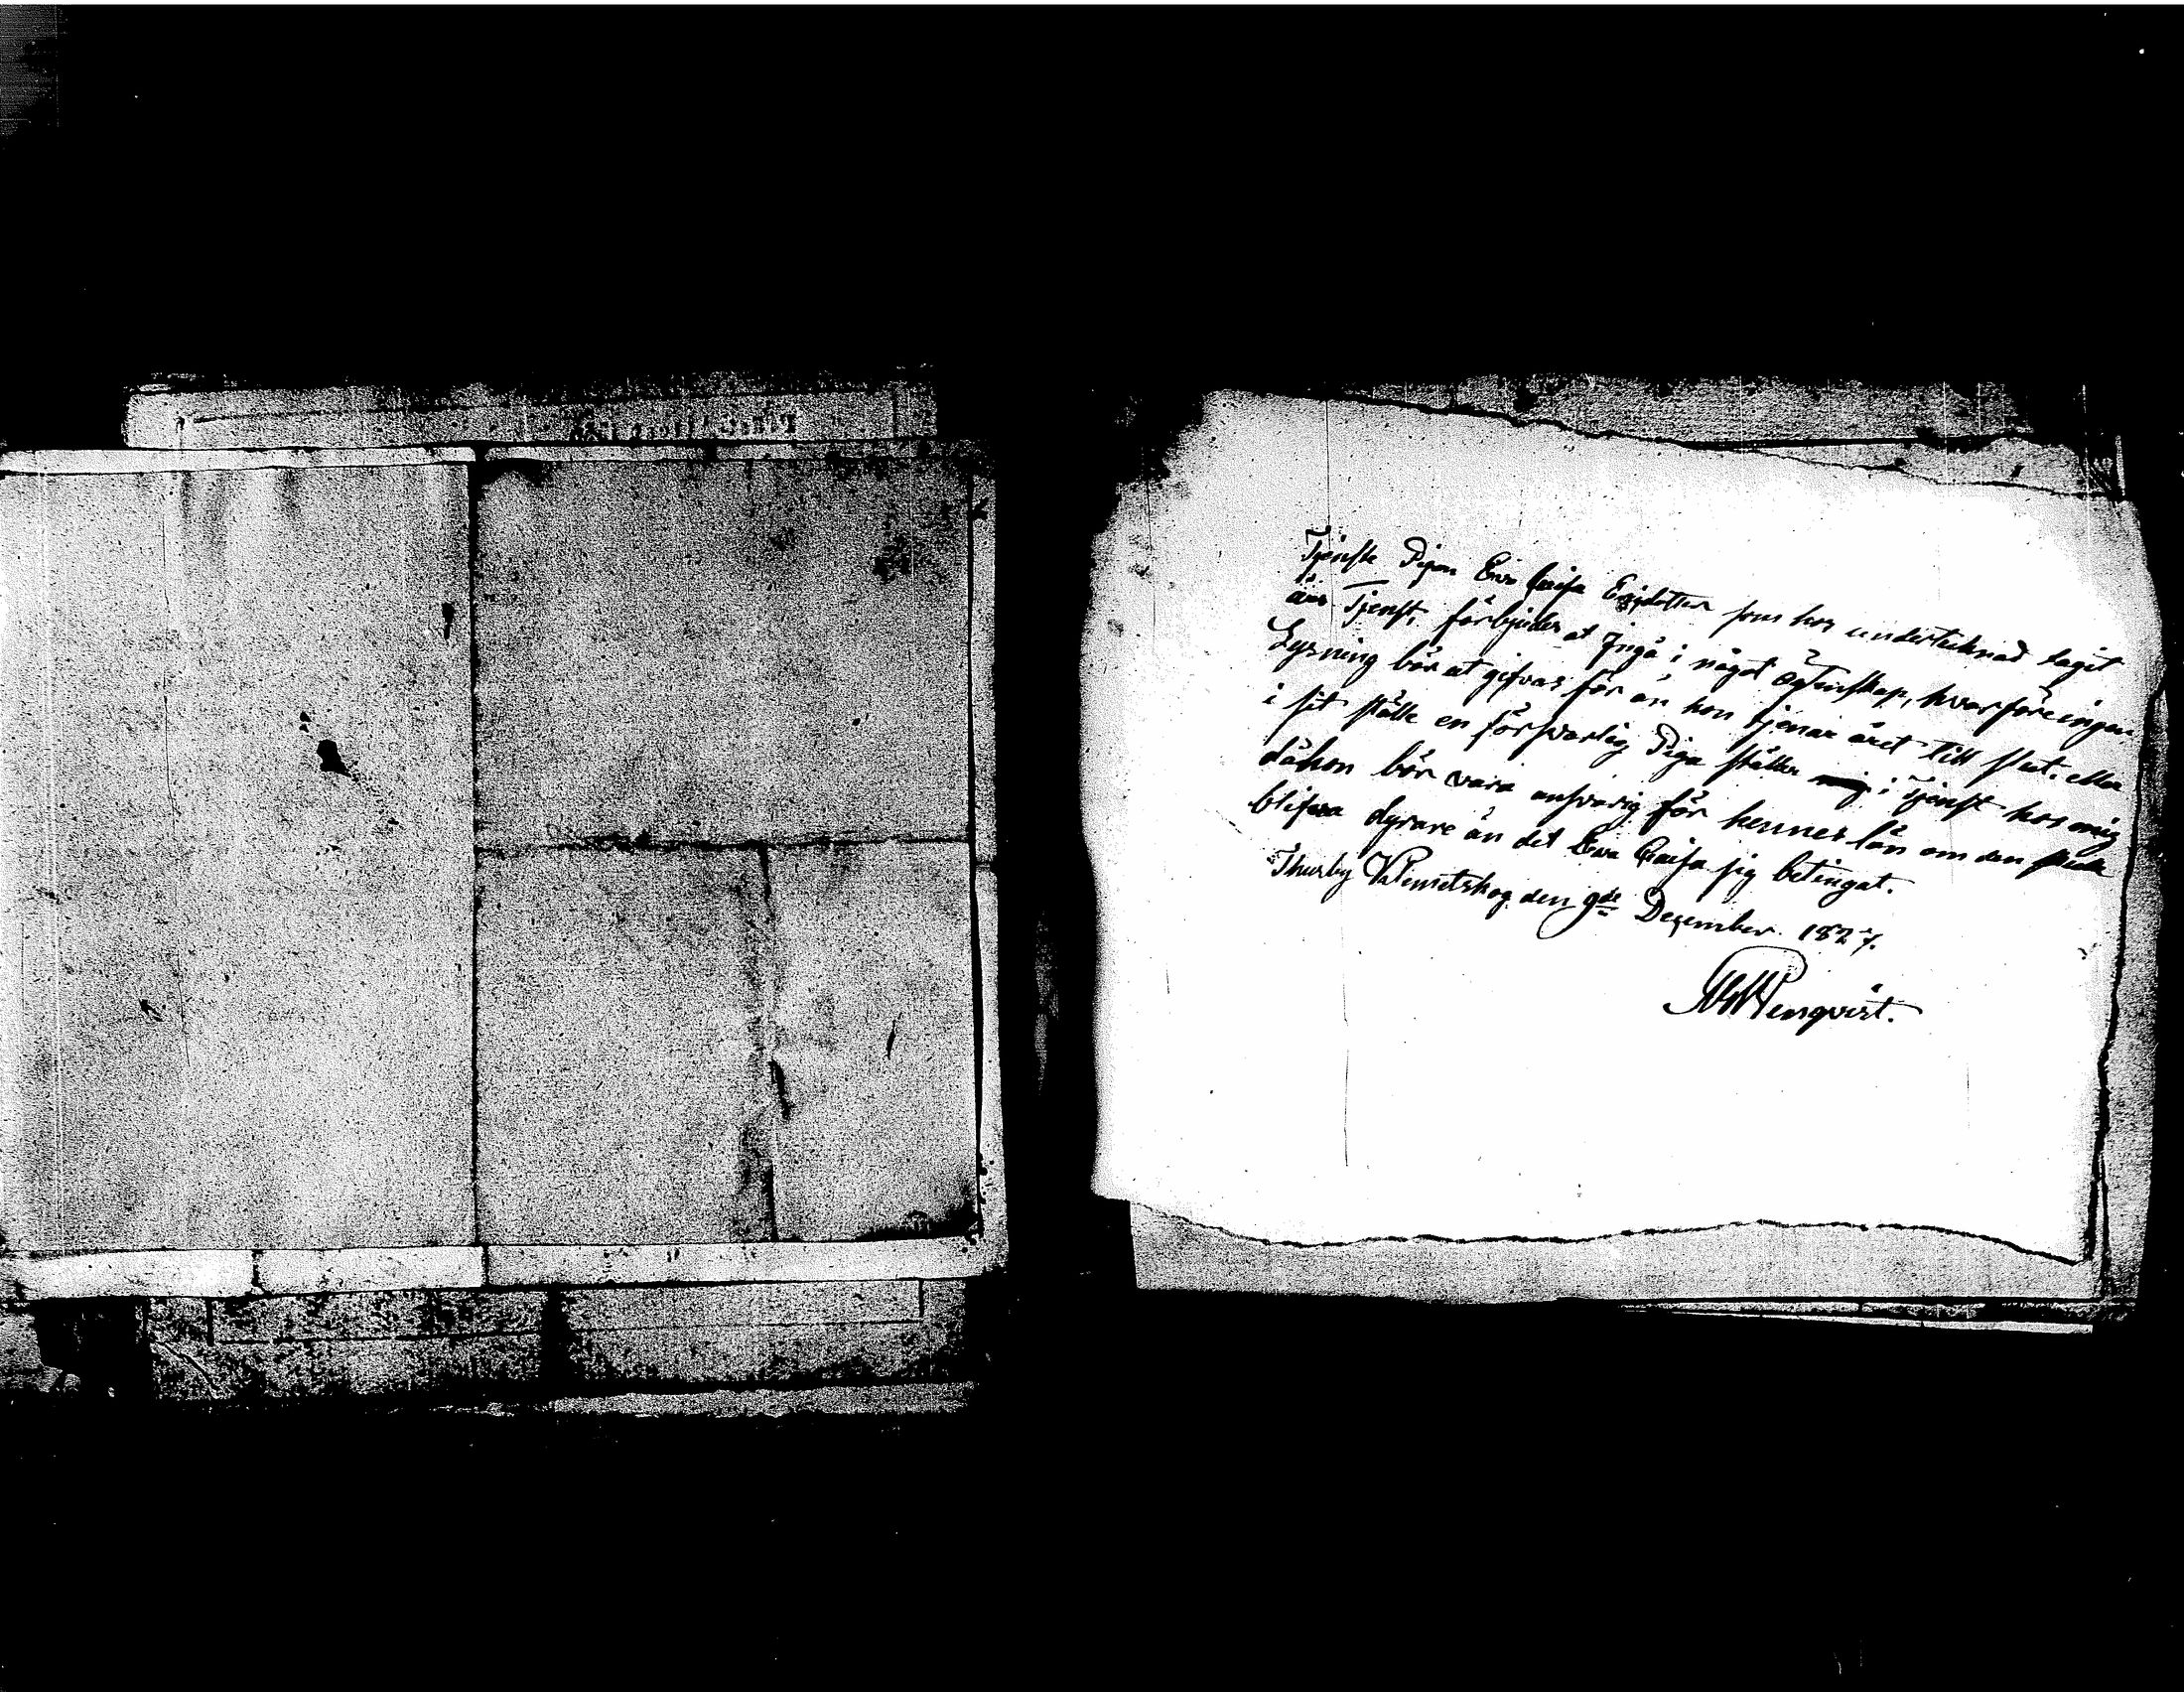 Tjenste Pigan Eva Caisa Ersdotter som hos undertecknad tagit
års Tjenst, förbjudes at Ingå i något Ögtenskap, hvarföre ingen
Lysning bör at gifvas för än hon tjenar året till slut. eller
i sit ställe en försvarlig Piga ställer i Tjenst hos mig
dåhon bör vara ansvarig för hennes lön om den skulle
blifwa dyrare än det Eva Caisa sig betingat.
Thusby den 9de Dezember. 1827.